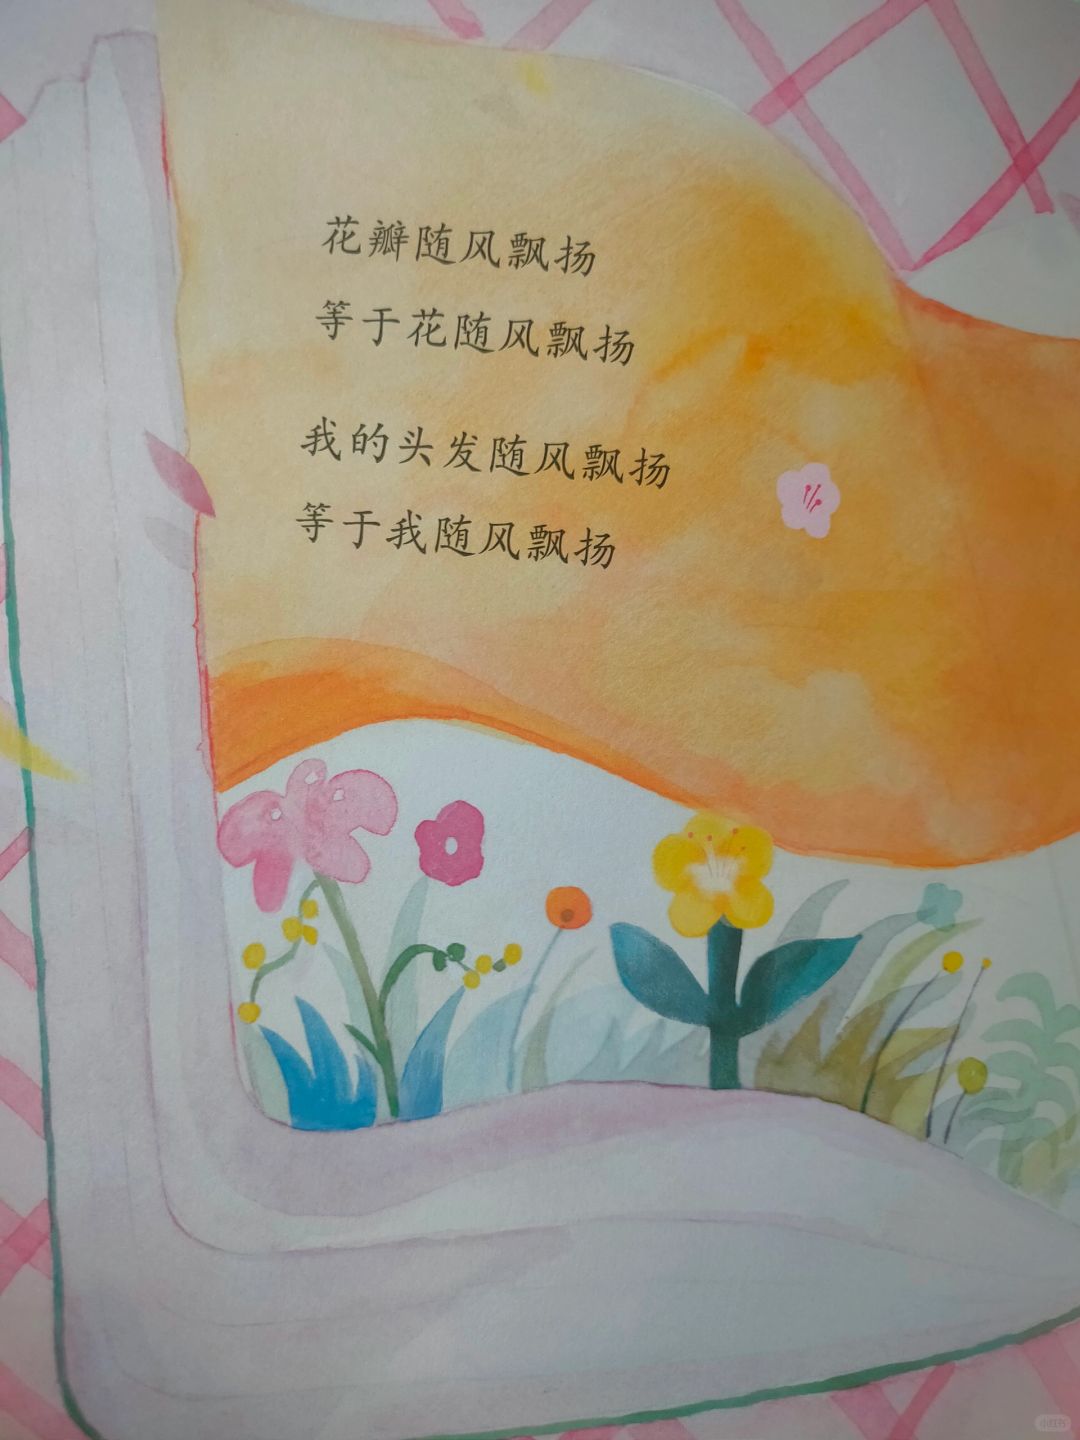 花瓣随风飘扬
等于花随风飘扬
我的头发随风飘扬
等于我随风飘扬
小红书